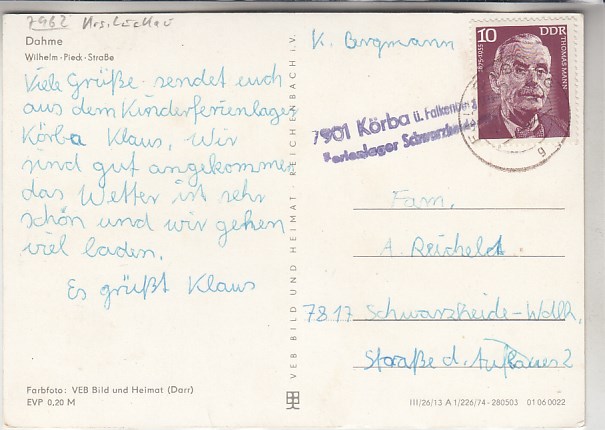 7962 Krs. Luckau
Dahme
Wilhelm-Pieck-Straße
Viele Grüße sendet euch
aus dem Kinderferienlager
Körba Klaus, Wir
sind gut angekommen
das Wetter ist sehr
schön und wir gehen
viel baden.
Es grüßt Klaus
Farbfoto: VEB Bild und Heimat (Darr)
EVP 0,20 M
VEB BILD UND HEIMAT · REICHENBACH i.V.
K. Bergmann
10 DDR
1875-1955 THOMAS MANN
7901 Körba ü. Falkenberg
Ferienlager
Fam.
A. Reichelt
7817 Schwarzheide-Wdlh.
Straße d. Aufbaues 2
III/26/13 A 1/226/74 - 280503 01 06 0022